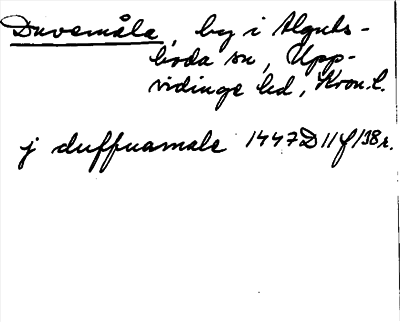 Duvemåla, by i Älguts-
boda sn, Upp-
vidinge hd, Kron. l.
j duffuamale 1447 D 11 f 138 r.